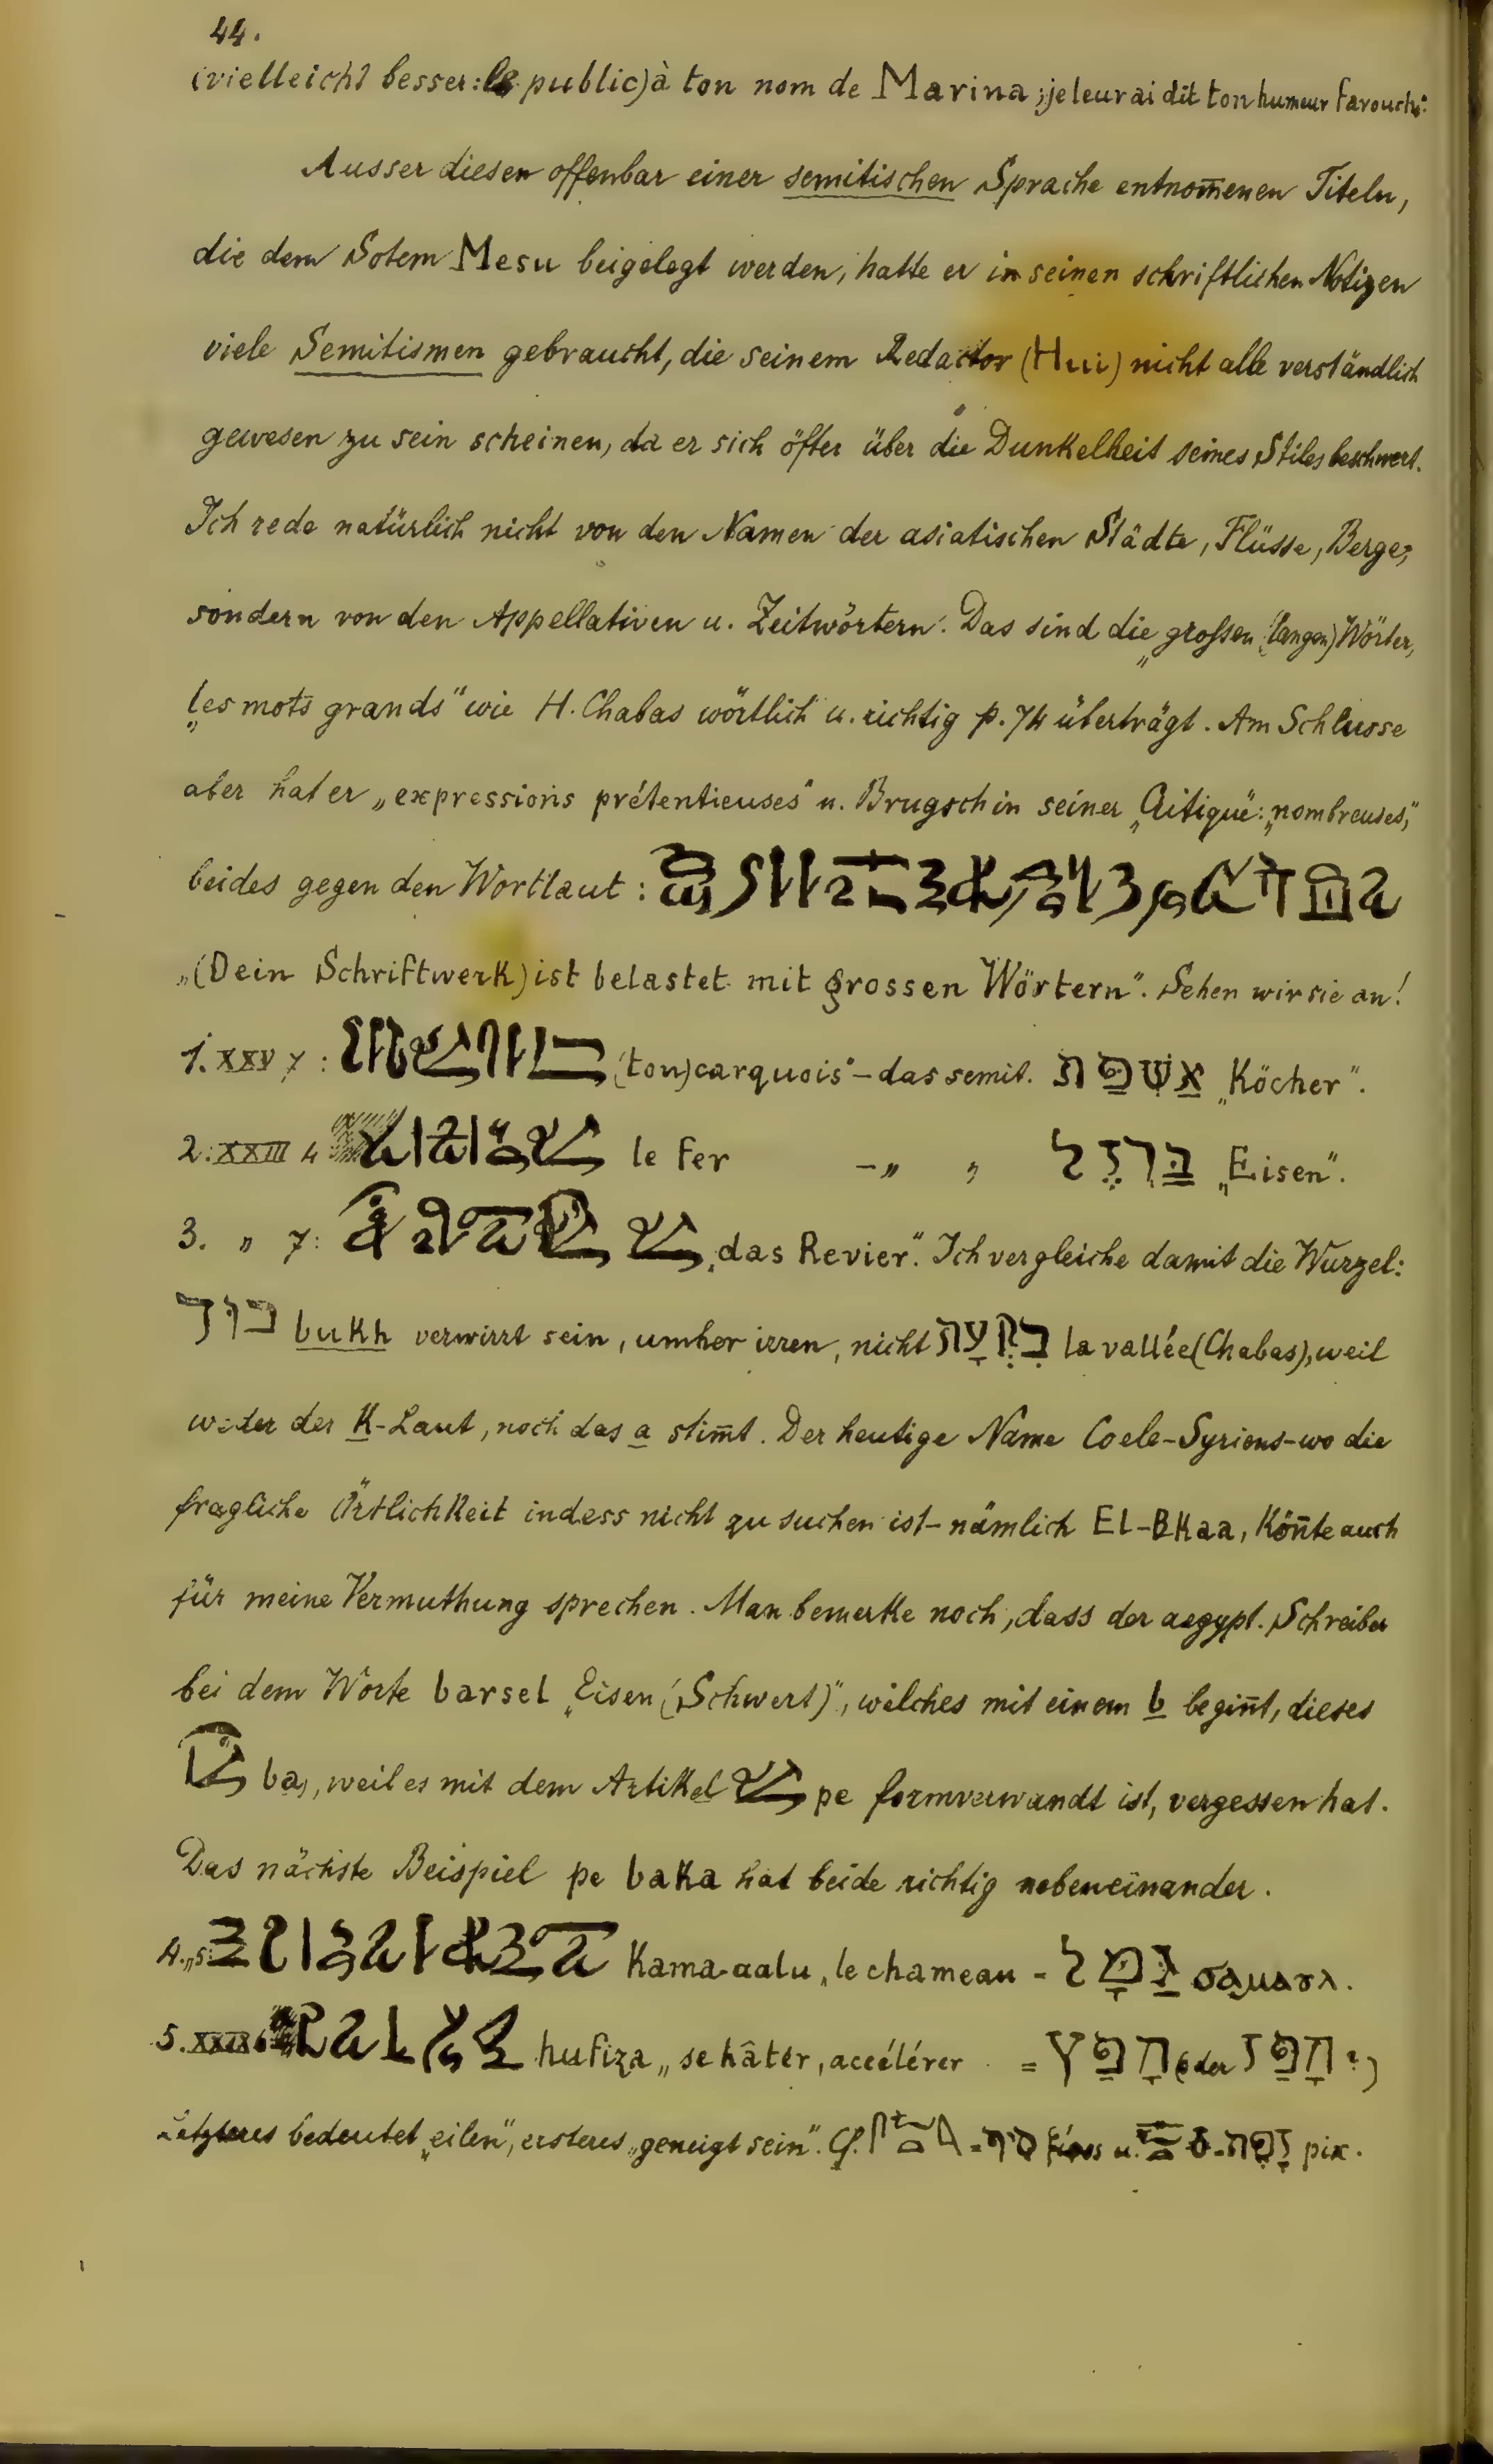 44.
(vielleicht besser: le public) à ton nom de Marina; je leur ai dit ton humeur farouche."
Ausser diesen offenbar einer semitischen Sprache entnom̄enen Titeln,
die dem Sotem Mesu beigelegt werden, hatte er in seinen schriftlichen Notizen
viele Semitismen gebraucht, die seinem Redactor (Hui) nicht alle verständlich
gewesen zu sein scheinen, da er sich öfter über die Dunkelheit seines Stiles beschwert.
Ich rede natürlich nicht von den Namen der asiatischen Städte, Flüsse, Berge,
sondern von den Appellativen u. Zeitwörtern. Das sind die „grossen (langen) Wörter,
„les mots grands" wie H. Chabas wörtlich u. richtig p. 74 überträgt. Am Schlusse
aber hat er „expressions prétentieuses" u. Brugsch in seiner „Critique": „nombreuses,"
beides gegen den Wortlaut:
„(Dein Schriftwerk) ist belastet mit grossen Wörtern". Sehen wir sie an!
1. XXV 7: (ton) carquois" – das semit. אַשְׁפַּת „Köcher".
2. XXIII 4 le fer – „ „ בַּרְזֶל „Eisen".
3. „ 7: „das Revier". Ich vergleiche damit die Wurzel:
בוך bukh verwirrt sein, umher irren, nicht בִּקְעָה la vallée (Chabas), weil
weder der K-Laut, noch das a stim̄t. Der heutige Name Coele-Syriens – wo die
fragliche Örtlichkeit indess nicht zu suchen ist – nämlich El-BKaa, kön̄te auch
für meine Vermuthung sprechen. Man bemerke noch, dass der aegypt. Schreiber
bei dem Worte barsel „Eisen (Schwert)", welches mit einem b begin̄t, dieses
ba, weil es mit dem Artikel pe formverwandt ist, vergessen hat.
Das nächste Beispiel pe baka hat beide richtig nebeneinander.
4. „ 5: Kama-aalu „le chameau – גַּמָל
5. hufiza „se hâter, accélérer = חָפַץ (oder חָפַז?)
Letzteres bedeutet „eilen", ersteres „geneigt sein". Cf. = סיר u. = זֶפֶת pix.